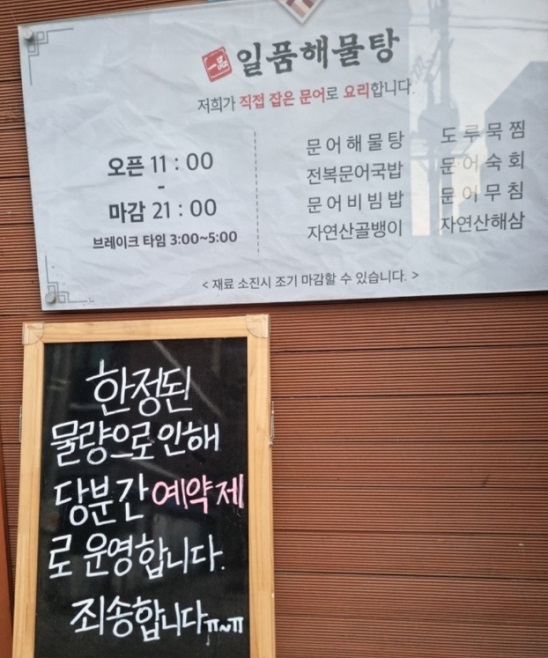 一品 일품해물탕
저희가 직접 잡은 문어로 요리합니다.
오픈 11 : 00
-
마감 21 : 00
브레이크 타임 3:00~5:00
문어해물탕
전복문어국밥
문어비빔밥
자연산골뱅이
도루묵찜
문어숙회
문어무침
자연산해삼
< 재료 소진시 조기 마감할 수 있습니다. >
한정된
물량으로 인해
당분간 예약제
로 운영합니다.
죄송합니다ㅠ~ㅠ